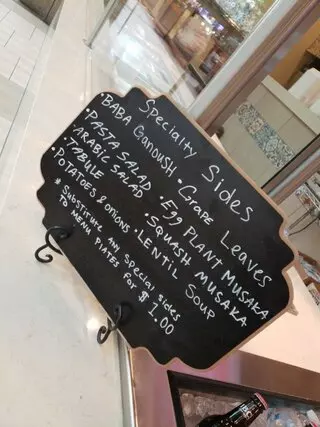 Specialty Sides
• BABA GANOUSH • Grape Leaves
• PISTA SALAD • Egg PLANT MUSAKA
• ARABIC SALAD • SQUASH MUSAKA
• TABULE • LENTIL SOUP
• POTATOES & ONIONS
* Substitute any special sides
TO MENU PLATES FOR $1.00